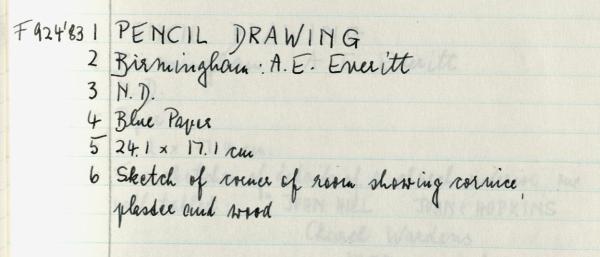 F924'83 1 PENCIL DRAWING
2 Birmingham: A.E. Everitt
3 N.D.
4 Blue Paper
5 24.1 x 17.1 cm
6 Sketch of corner of room showing cornice,
plaster and wood
JOHN HILL
HOPKINS
Wardens